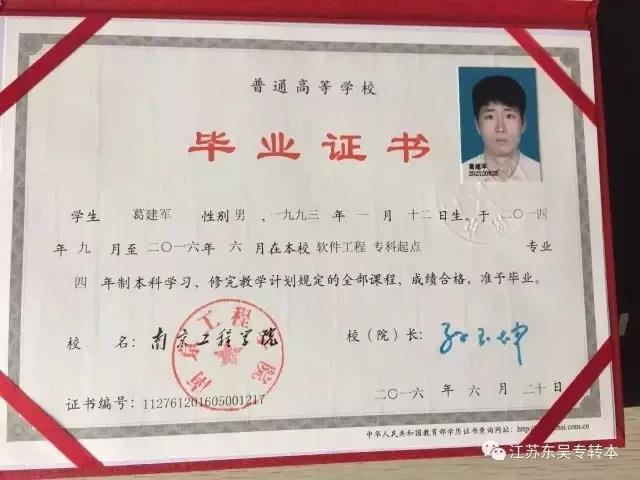 普通高等学校
毕业证书
葛建军
202120835
学生 葛建军 性别 男 ,一九九三 年 一 月 十二日生,于 二〇一四
年 九 月至二〇一六年 六 月在本校 软件工程 专科起点 专业
四 年制本科学习,修完教学计划规定的全部课程,成绩合格,准予毕业。
校 名: 南京工程学院 校(院)长:
南京工程学院
证书编号: 112761201605001217 二〇一六 年 六 月 二十日
中华人民共和国教育部学历证书查询网址:
江苏东吴专转本